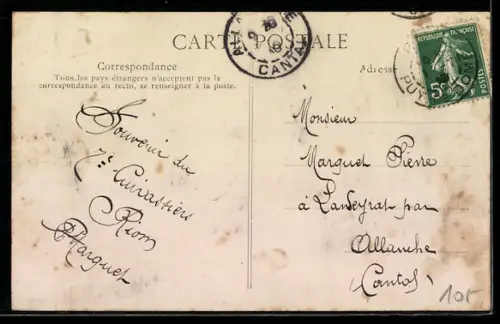 CARTE POSTALE
CANTAL
Correspondance
Tous les pays étrangers n'acceptent pas la
correspondance au recto, se renseigner à la poste.
Adresse
RÉPUBLIQUE FRANÇAISE
5c
POSTES
PUY DOME
Souvenir du
7e Cuirassiers
Riom
Marguet
Monsieur
Marguet Pierre
à Landeyrat par
Allanche
(Cantal)
10F